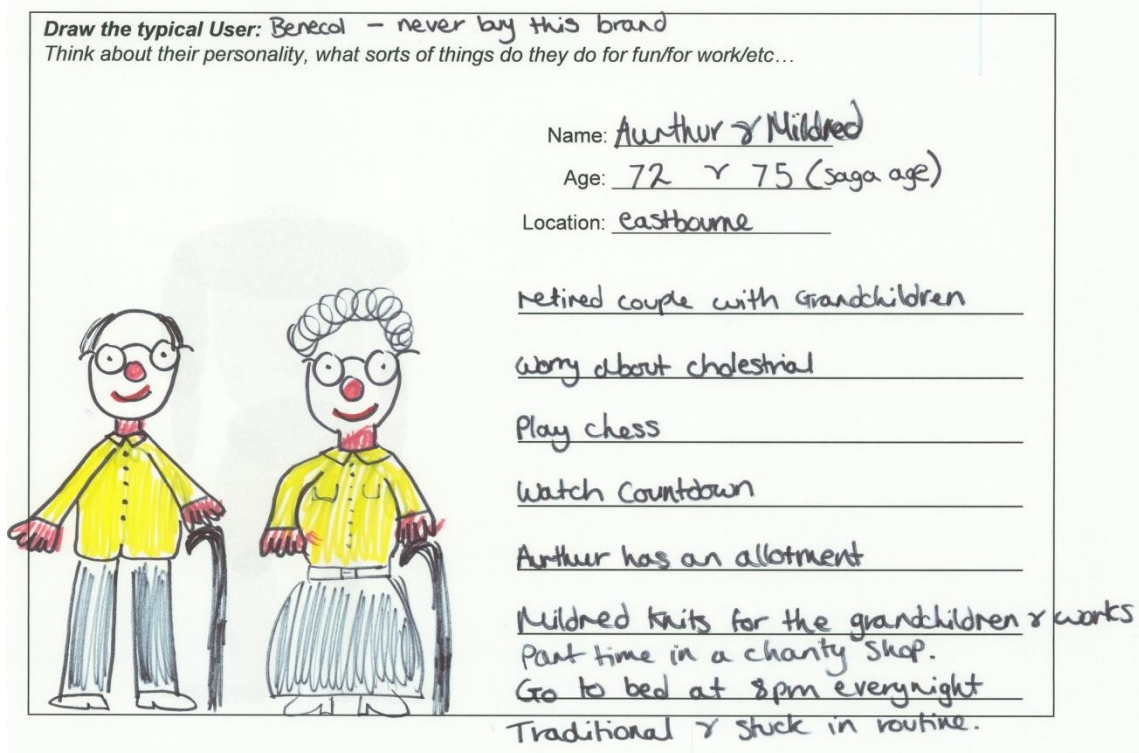 Draw the typical User: Benecol – never buy this brand
Think about their personality, what sorts of things do they do for fun/for work/etc…
Name: Aurthur & Mildred
Age: 72 & 75 (saga age)
Location: eastbourne
retired couple with Grandchildren
worry about cholestrial
Play chess
Watch Countdown
Aurthur has an allotment
Mildred knits for the grandchildren & works
Part time in a charity shop.
Go to bed at 8pm everynight
Traditional & stuck in routine.